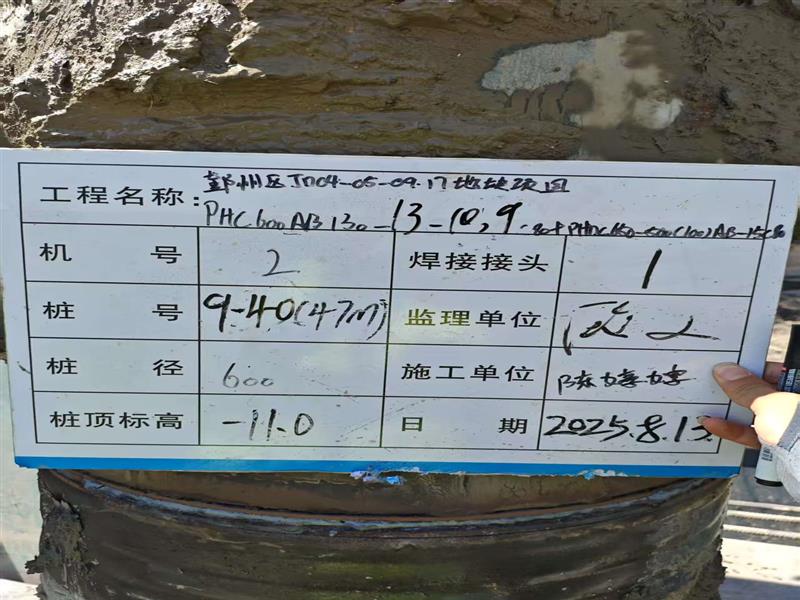 工程名称: 鄞州区JD04-05-09.17地块项目
PHC600AB130-13-10,9
机号 2 焊接接头 1
桩号 9-40(47m) 监理单位
桩径 600 施工单位 陈婷婷
桩顶标高 -11.0 日期 2025.8.13